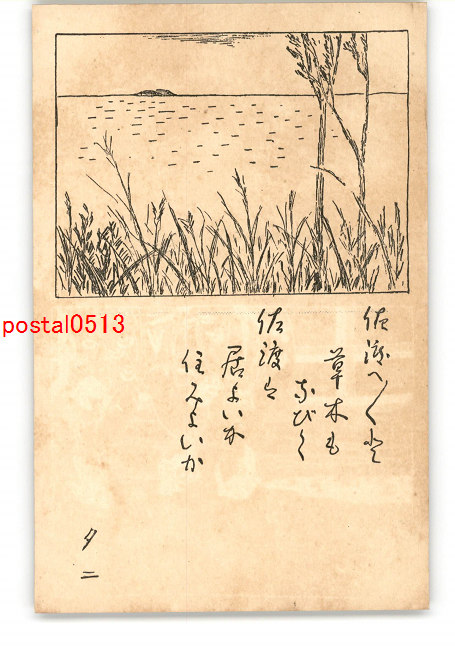 佐渡へ〳〵と
草木も
なびく
佐渡は
居よいか
住みよいか
夕ニ
postal0513